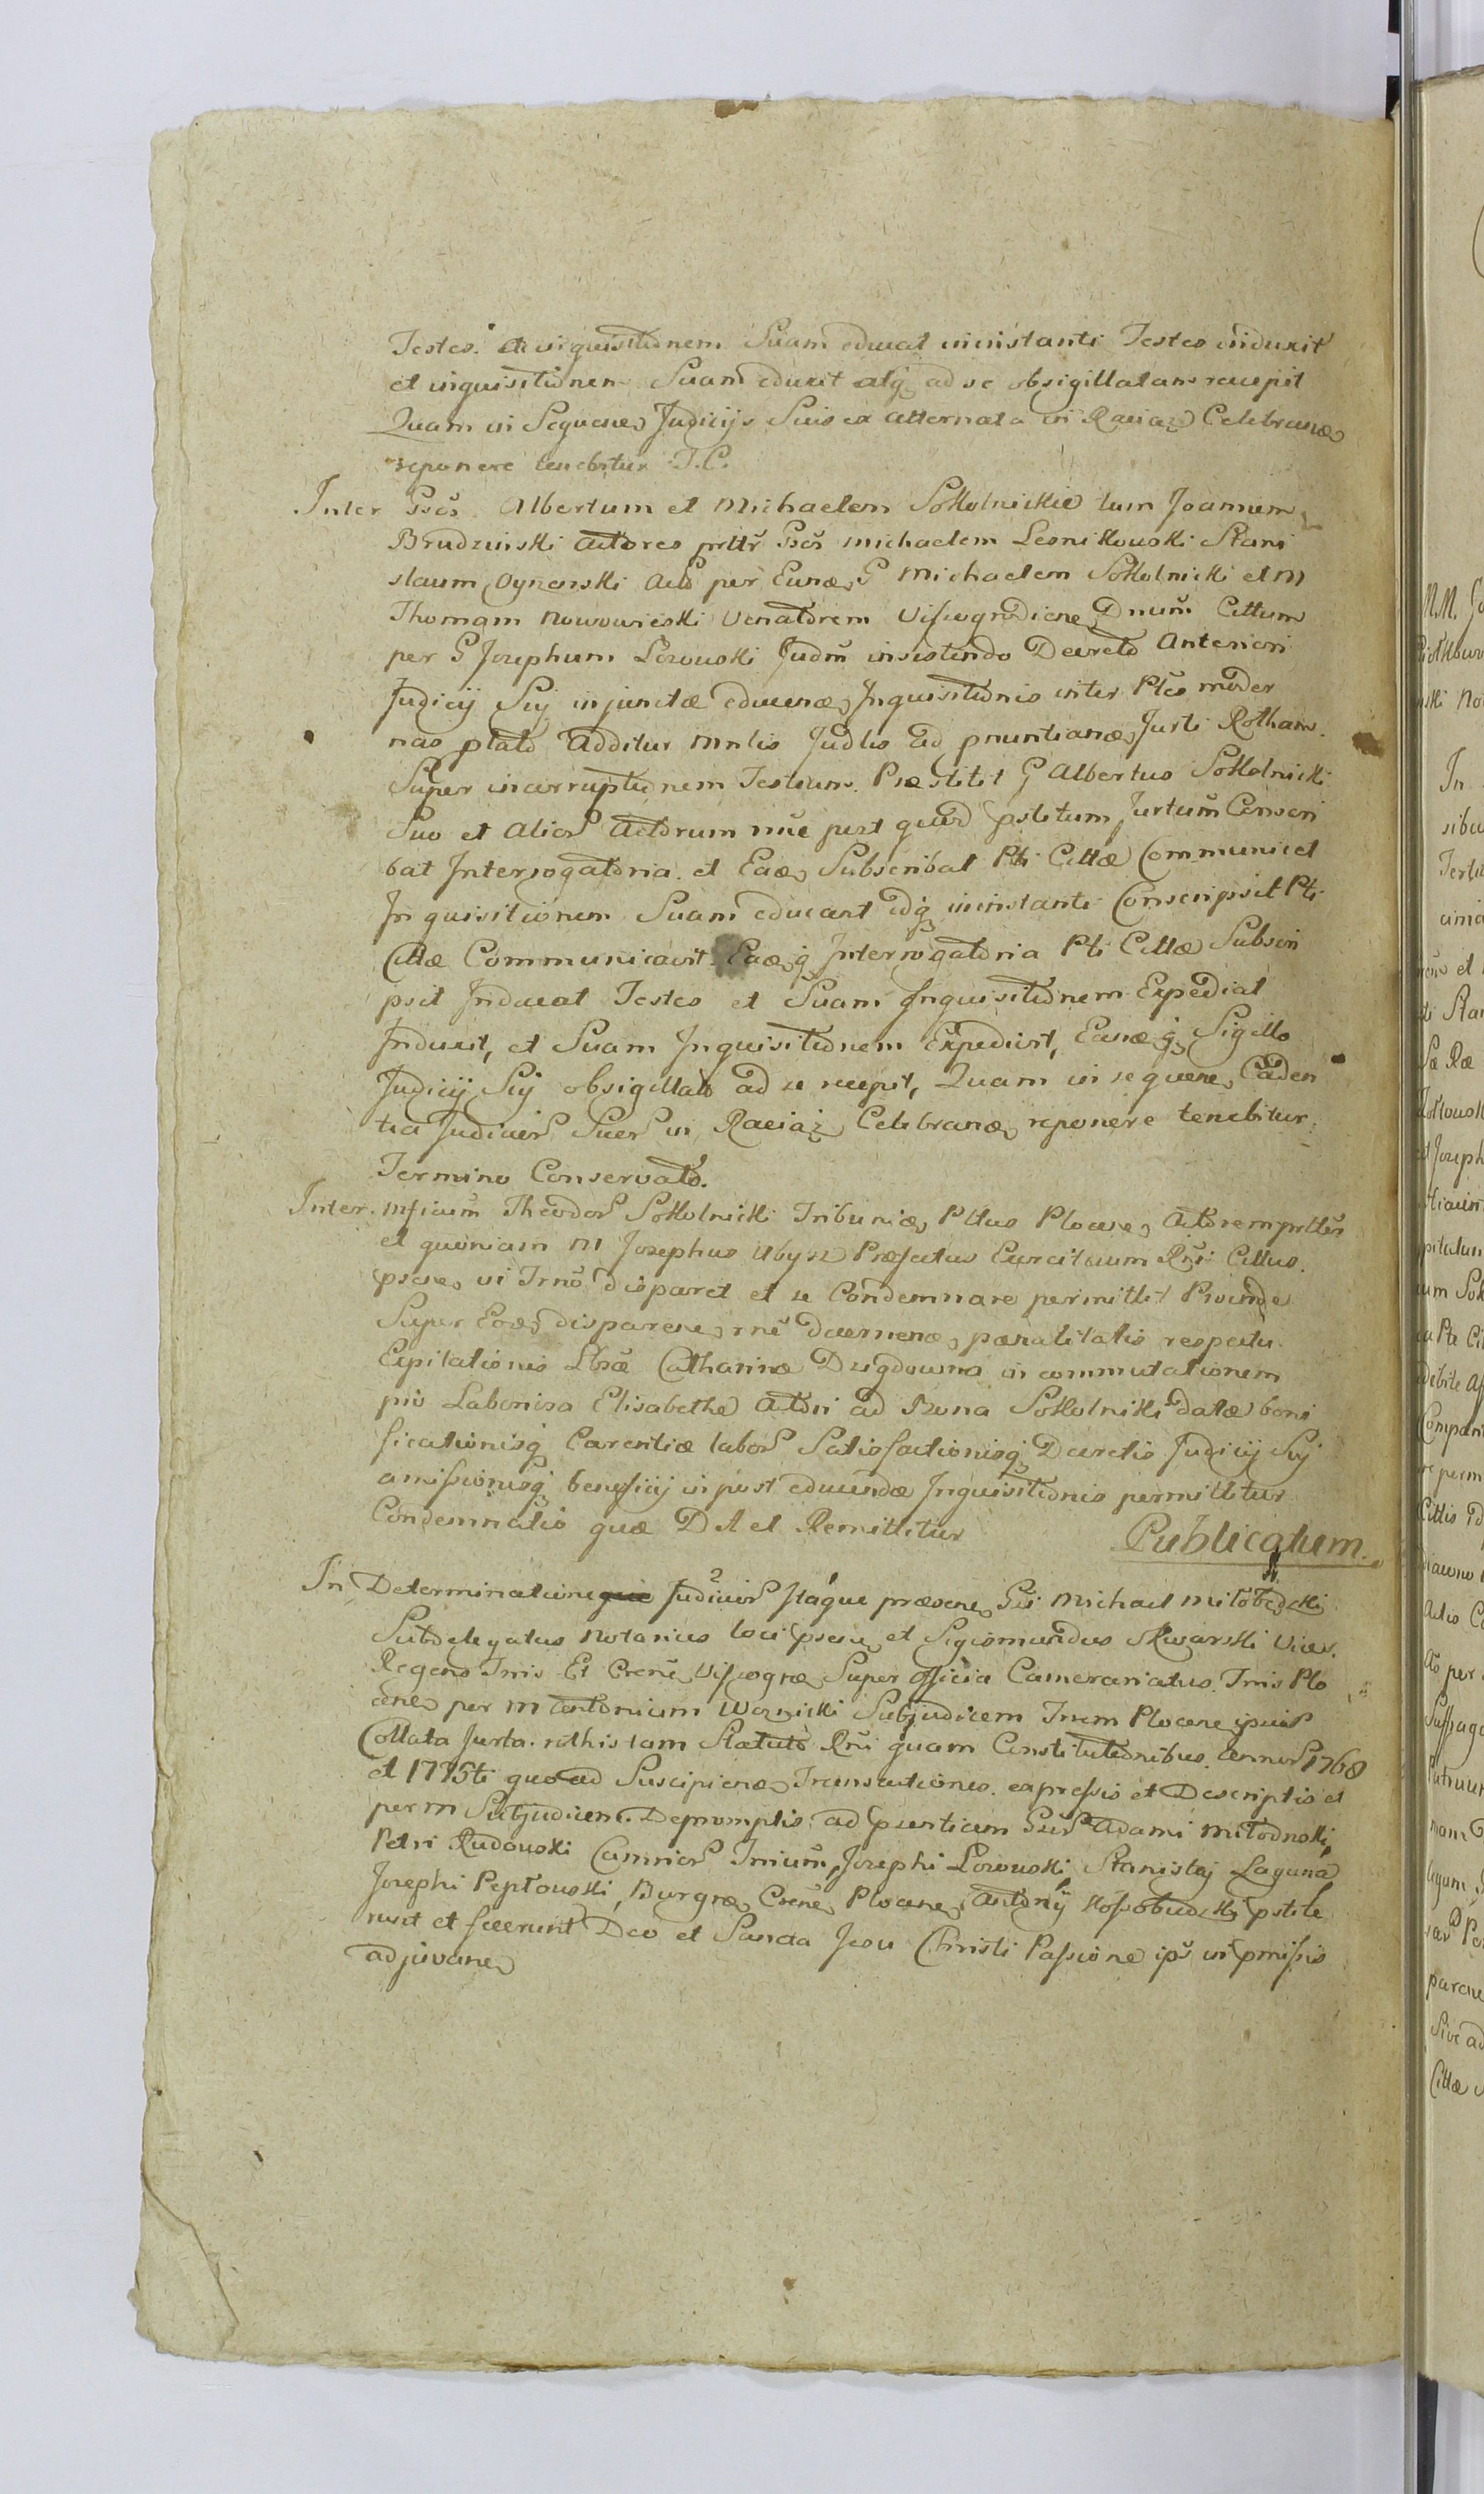 Testes et inquisitionem Suam educat in instanti Testes induxit
et inquisitionem Suam eduxit atq ad se obsigillatam recepit
Quam in Sequene Judicijs Suis ex alternata in Raciaz Celebrane
reponere tenebitur T. C.
Inter Gsos Albertum et Michaelem Sokolnickie tum Joannem
Brudzinski Actores prttr Gsos Michaelem Lesnikowski Stani
slaum per Eunde G Michaelem Sokolnicki et M
Thomam Nowowieski Venatorem Vissogrodiene Dnum Cittum
per G Josephum Lozowski Judm insistendo Decreto Anteriori
Judicij Sui injunctæ educenæ Inquisitionis inter Ptes moder
nas plato Additur Mnlis Judlis ad pnuntianæ Jurti Rotham
Super incorruptionem Testium Præstitit G Albertus Sokolnicki
Suo et Alior Actorum nne post quod pstitum Jurtum Conscri
bat Interrogatoria et Eadæ Subscribat Pti Cittæ Communicet
Inquisitionem Suam educant idq in instanti Conscripsit Pti
Cittæ Communicavit Eadæq Interrogatoria Pti Cittæ Subscri
psit Inducat Testes et Suam Inquisitionem Expediat
Induxit, et Suam Inquisitionem Expedivit, Eandæq Sigillo
Judicij Sui obsigillato ad se recepit, Quam in sequene Caden
tia Judicior Suor in Raciaz Celebranæ reponere tenebitur
Termino Conservato.
Inter Mficum Theodor Sokolnicki Tribunidæ Pttus Plocene Actorem prttr
et quoniam M Josephus Abysz Præfectus Exercituum Rni Cittus
psene in Trno disparet et se Condemnare permittit Proinde
Super Eodæ disparene rne decernenæ pænalitatis respectu
Expilationis Lbræ Catharinæ Drzgdowna in commutationem
pro Laboriosa Elisabetha Actori ad Bona Sokolniki datæ boni
ficationisq Carentiæ labor Satisfactionisq Decretis Judicij Sui
amissionisq beneficij in post educendæ Inquisitionis permittitur
Condemnatio quæ D A et Remittitur
Publicatum
In Determinatione Judicior Itaque præsene Gsi Michael Miłobędzki
Subdelegatus Notarius loci psene et Sigismundus Skwarski Vices
Regens Tris Et Crene Vissogræ Super officia Camerariatus Tris Plo
cene per M Antonium Woznicki Subjudicem Trem Plocene ipsis
Collata Juxta rothis tam Statuto Rni quam Constitutionibus Annor 1768
et 1775ti quoad Suscipienæ Transactiones expressis et Descriptis et
per M Subjudicem Depromptis ad psentiam Gsor Adami Młodnoski,
Petri Rudowski Camrior Trium, Josephi Lozowski Stanislaj Laguna
Josephi Peptowski, Burgræ Crene Plocene Antonij Kossobudzki pstite
runt et fecerunt Deo et Sancta Jesu Christi Passione ips in pmissis
adjuvane